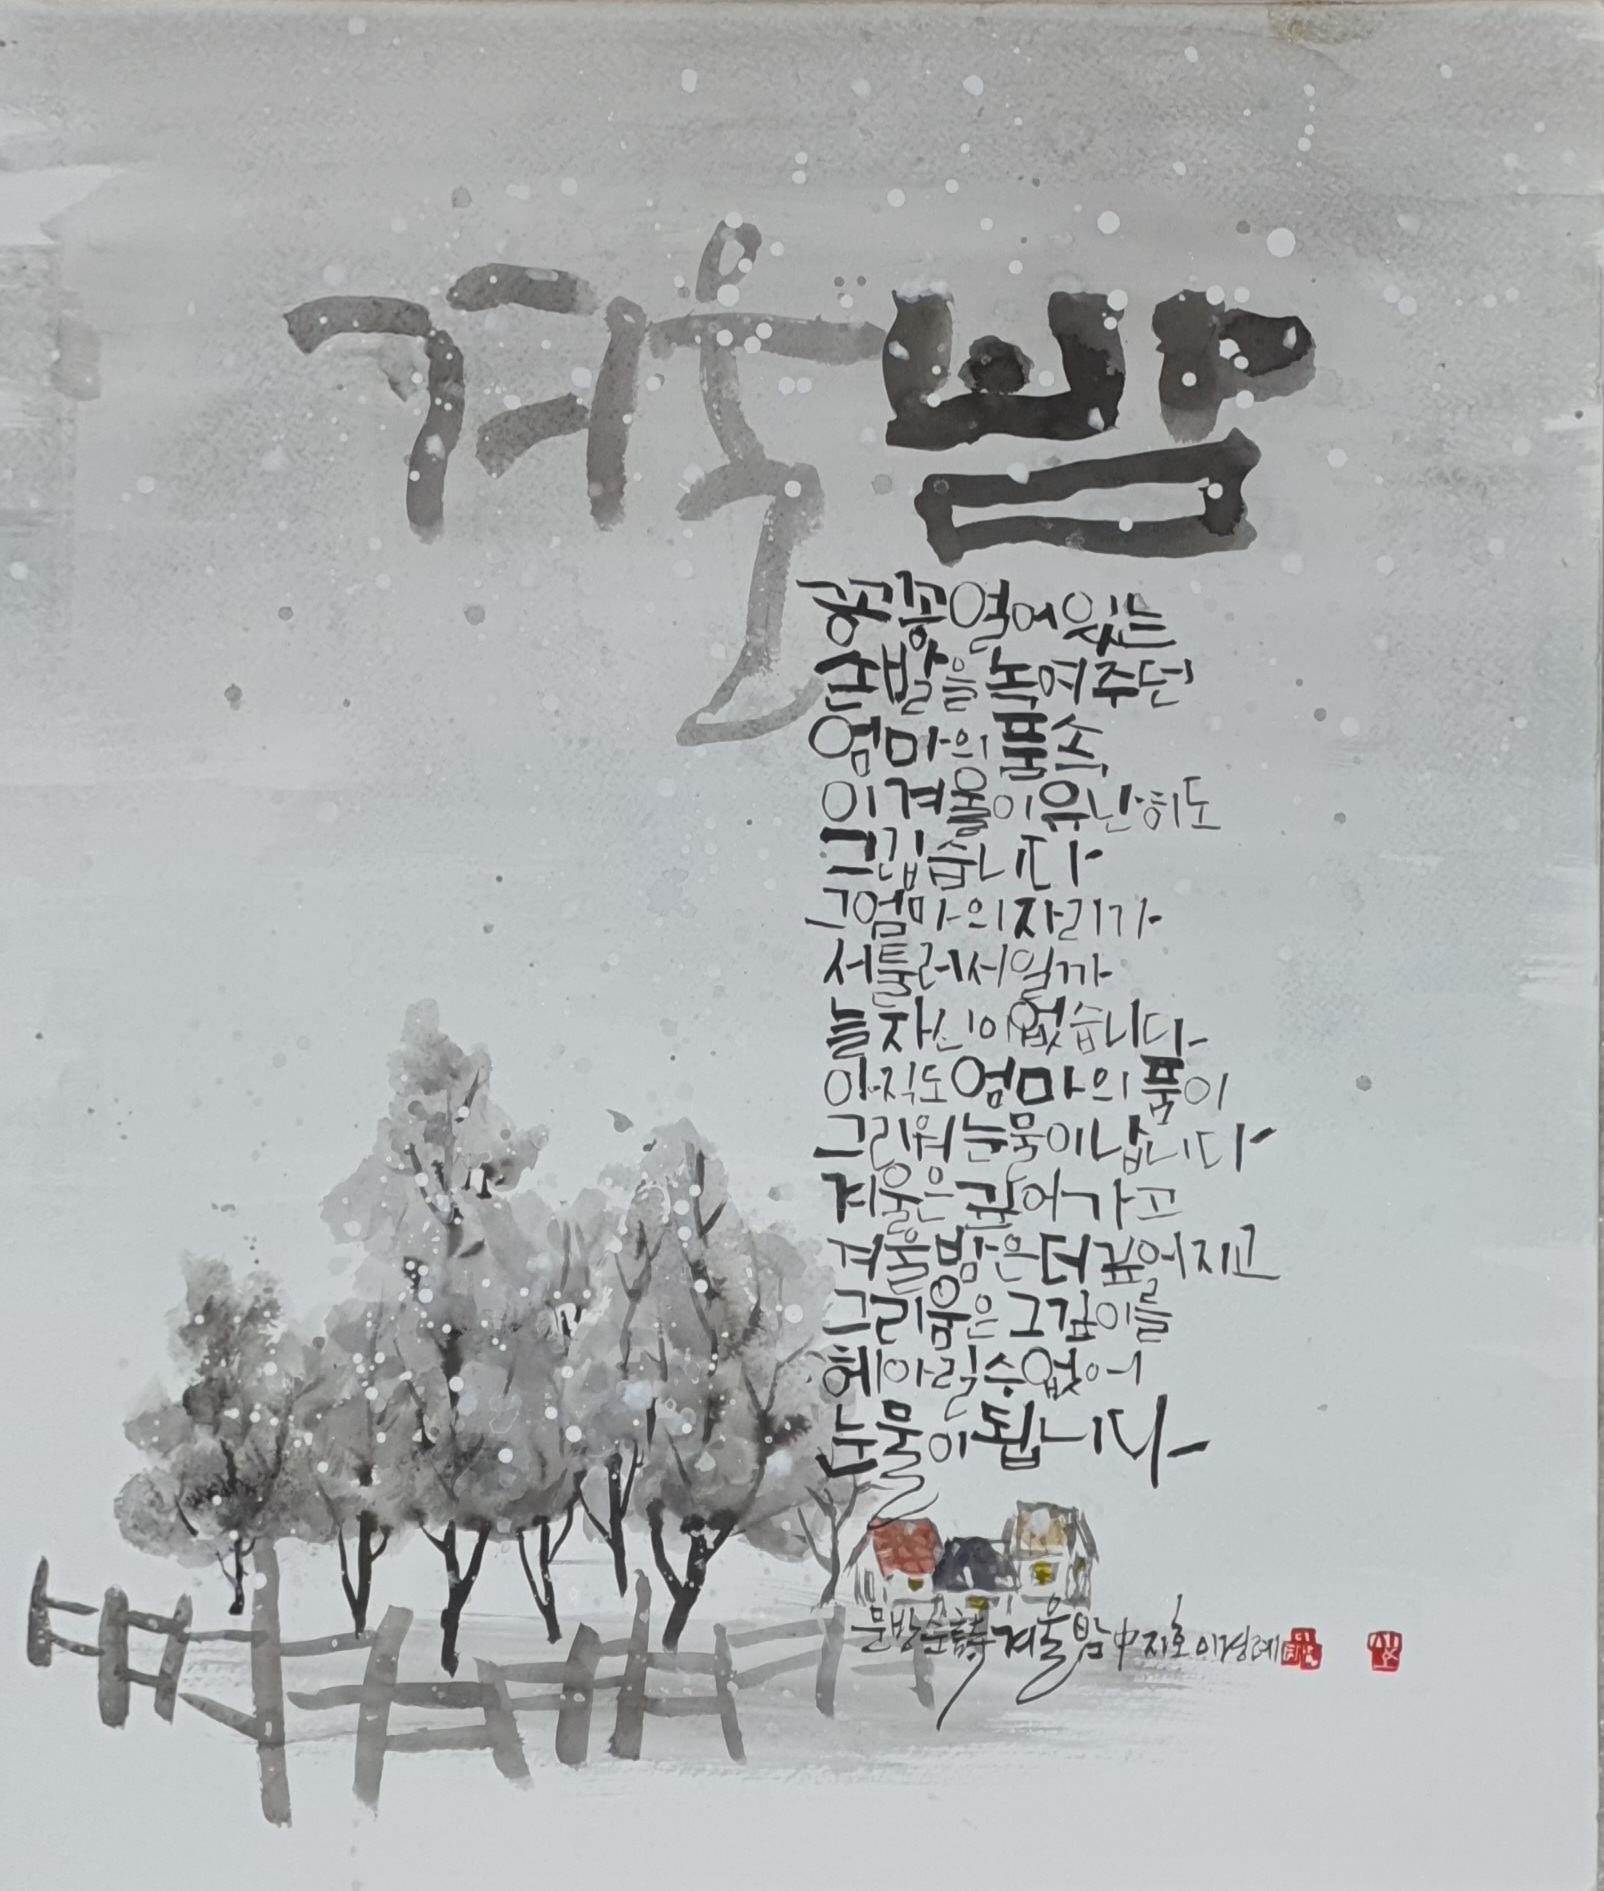 겨울밤
꽁꽁 얼어 있는
손발을 녹여주던
엄마의 품속
이 겨울이 유난히도
그립습니다
그 엄마의 자리가
서툴러서일까
늘 자신이 없습니다
아직도 엄마의 품이
그리워 눈물이 납니다
겨울은 깊어가고
겨울밤은 더 깊어지고
그리움은 그 깊이를
헤아릴 수 없어
눈물이 됩니다
문방순 詩 겨울밤 中 지호 이경례